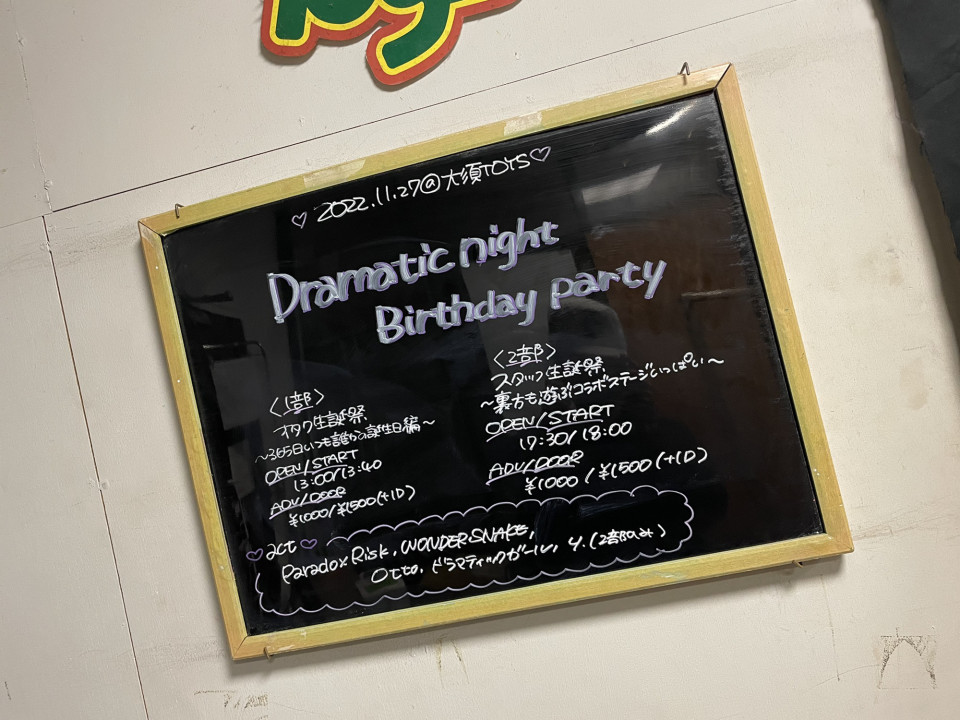 ♡ 2022.11.27@大須TOYS♡
Dramatic night
Birthday Party
〈1部〉
オタク生誕祭
～365日いつも誰かの誕生日編～
OPEN/START
13:00/13:40
ADV/DOOR
¥1000/¥1500(+1D)
〈2部〉
スタッフ生誕祭
～裏方も遊ぶコラボステージいっぱい～
OPEN/START
17:30/18:00
ADV/DOOR
¥1000/¥1500(+1D)
♡act♡
Paradox Risk, WONDER SNAKE,
Otto, ドラマティックガール, 4.(2部のみ)